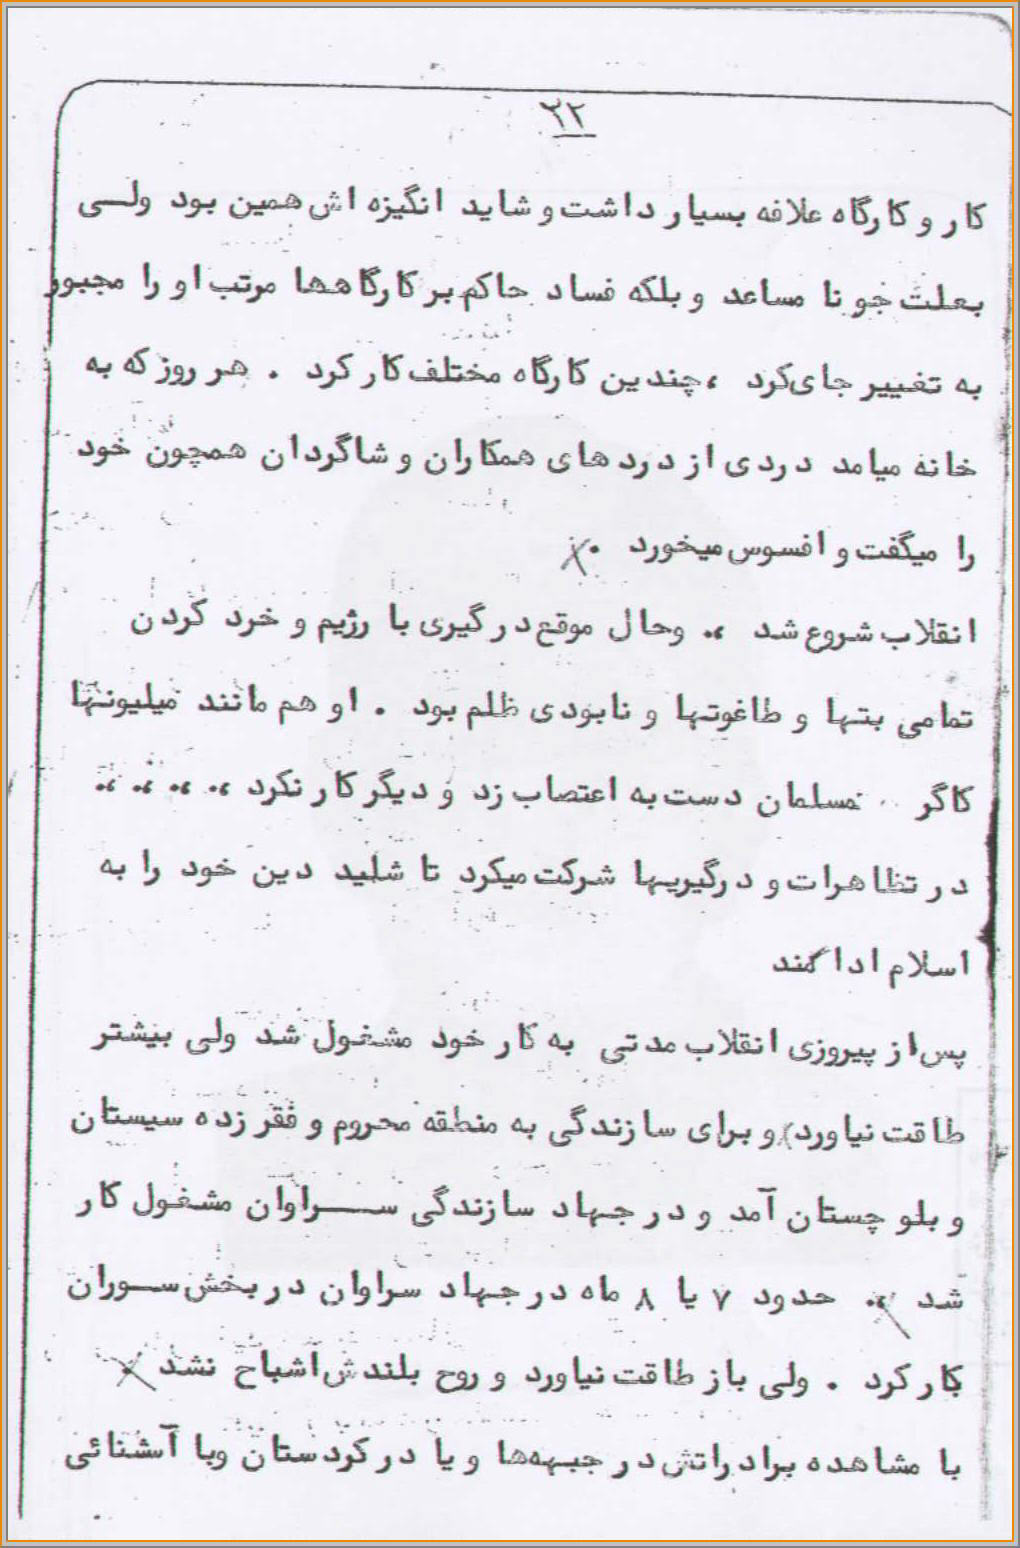 ۲۲
کار و کارگاه علاقه بسیار داشت و شاید انگیزه اش همین بود ولی
بعلت جو نا مساعد و بلکه فساد حاکم بر کارگاهها مرتب او را مجبور
به تغییر جای کرد ، چندین کارگاه مختلف کار کرد . هر روز که به
خانه میامد دردی از دردهای همکاران و شاگردان همچون خود
را میگفت و افسوس میخورد .
انقلاب شروع شد ،. وحال موقع درگیری با رژیم و خرد کردن
تمامی بتها و طاغوتها و نابودی ظلم بود . او هم مانند میلیونها
کاگر مسلمان دست به اعتصاب زد و دیگر کار نکرد ،. ،. ،. ،.
در تظاهرات و درگیریها شرکت میکرد تا شلید دین خود را به
اسلام ادا کند
پس از پیروزی انقلاب مدتی به کار خود مشغول شد ولی بیشتر
طاقت نیاورد و برای سازندگی به منطقه محروم و فقر زده سیستان
و بلوچستان آمد و در جهاد سازندگی سراوان مشغول کار
شد ،. حدود ۷ یا ۸ ماه در جهاد سراوان در بخش سوران
کار کرد . ولی باز طاقت نیاورد و روح بلندش اشباح نشد
با مشاهده برادراتش در جبهه‌ها و یا در کردستان وبا آشنائی